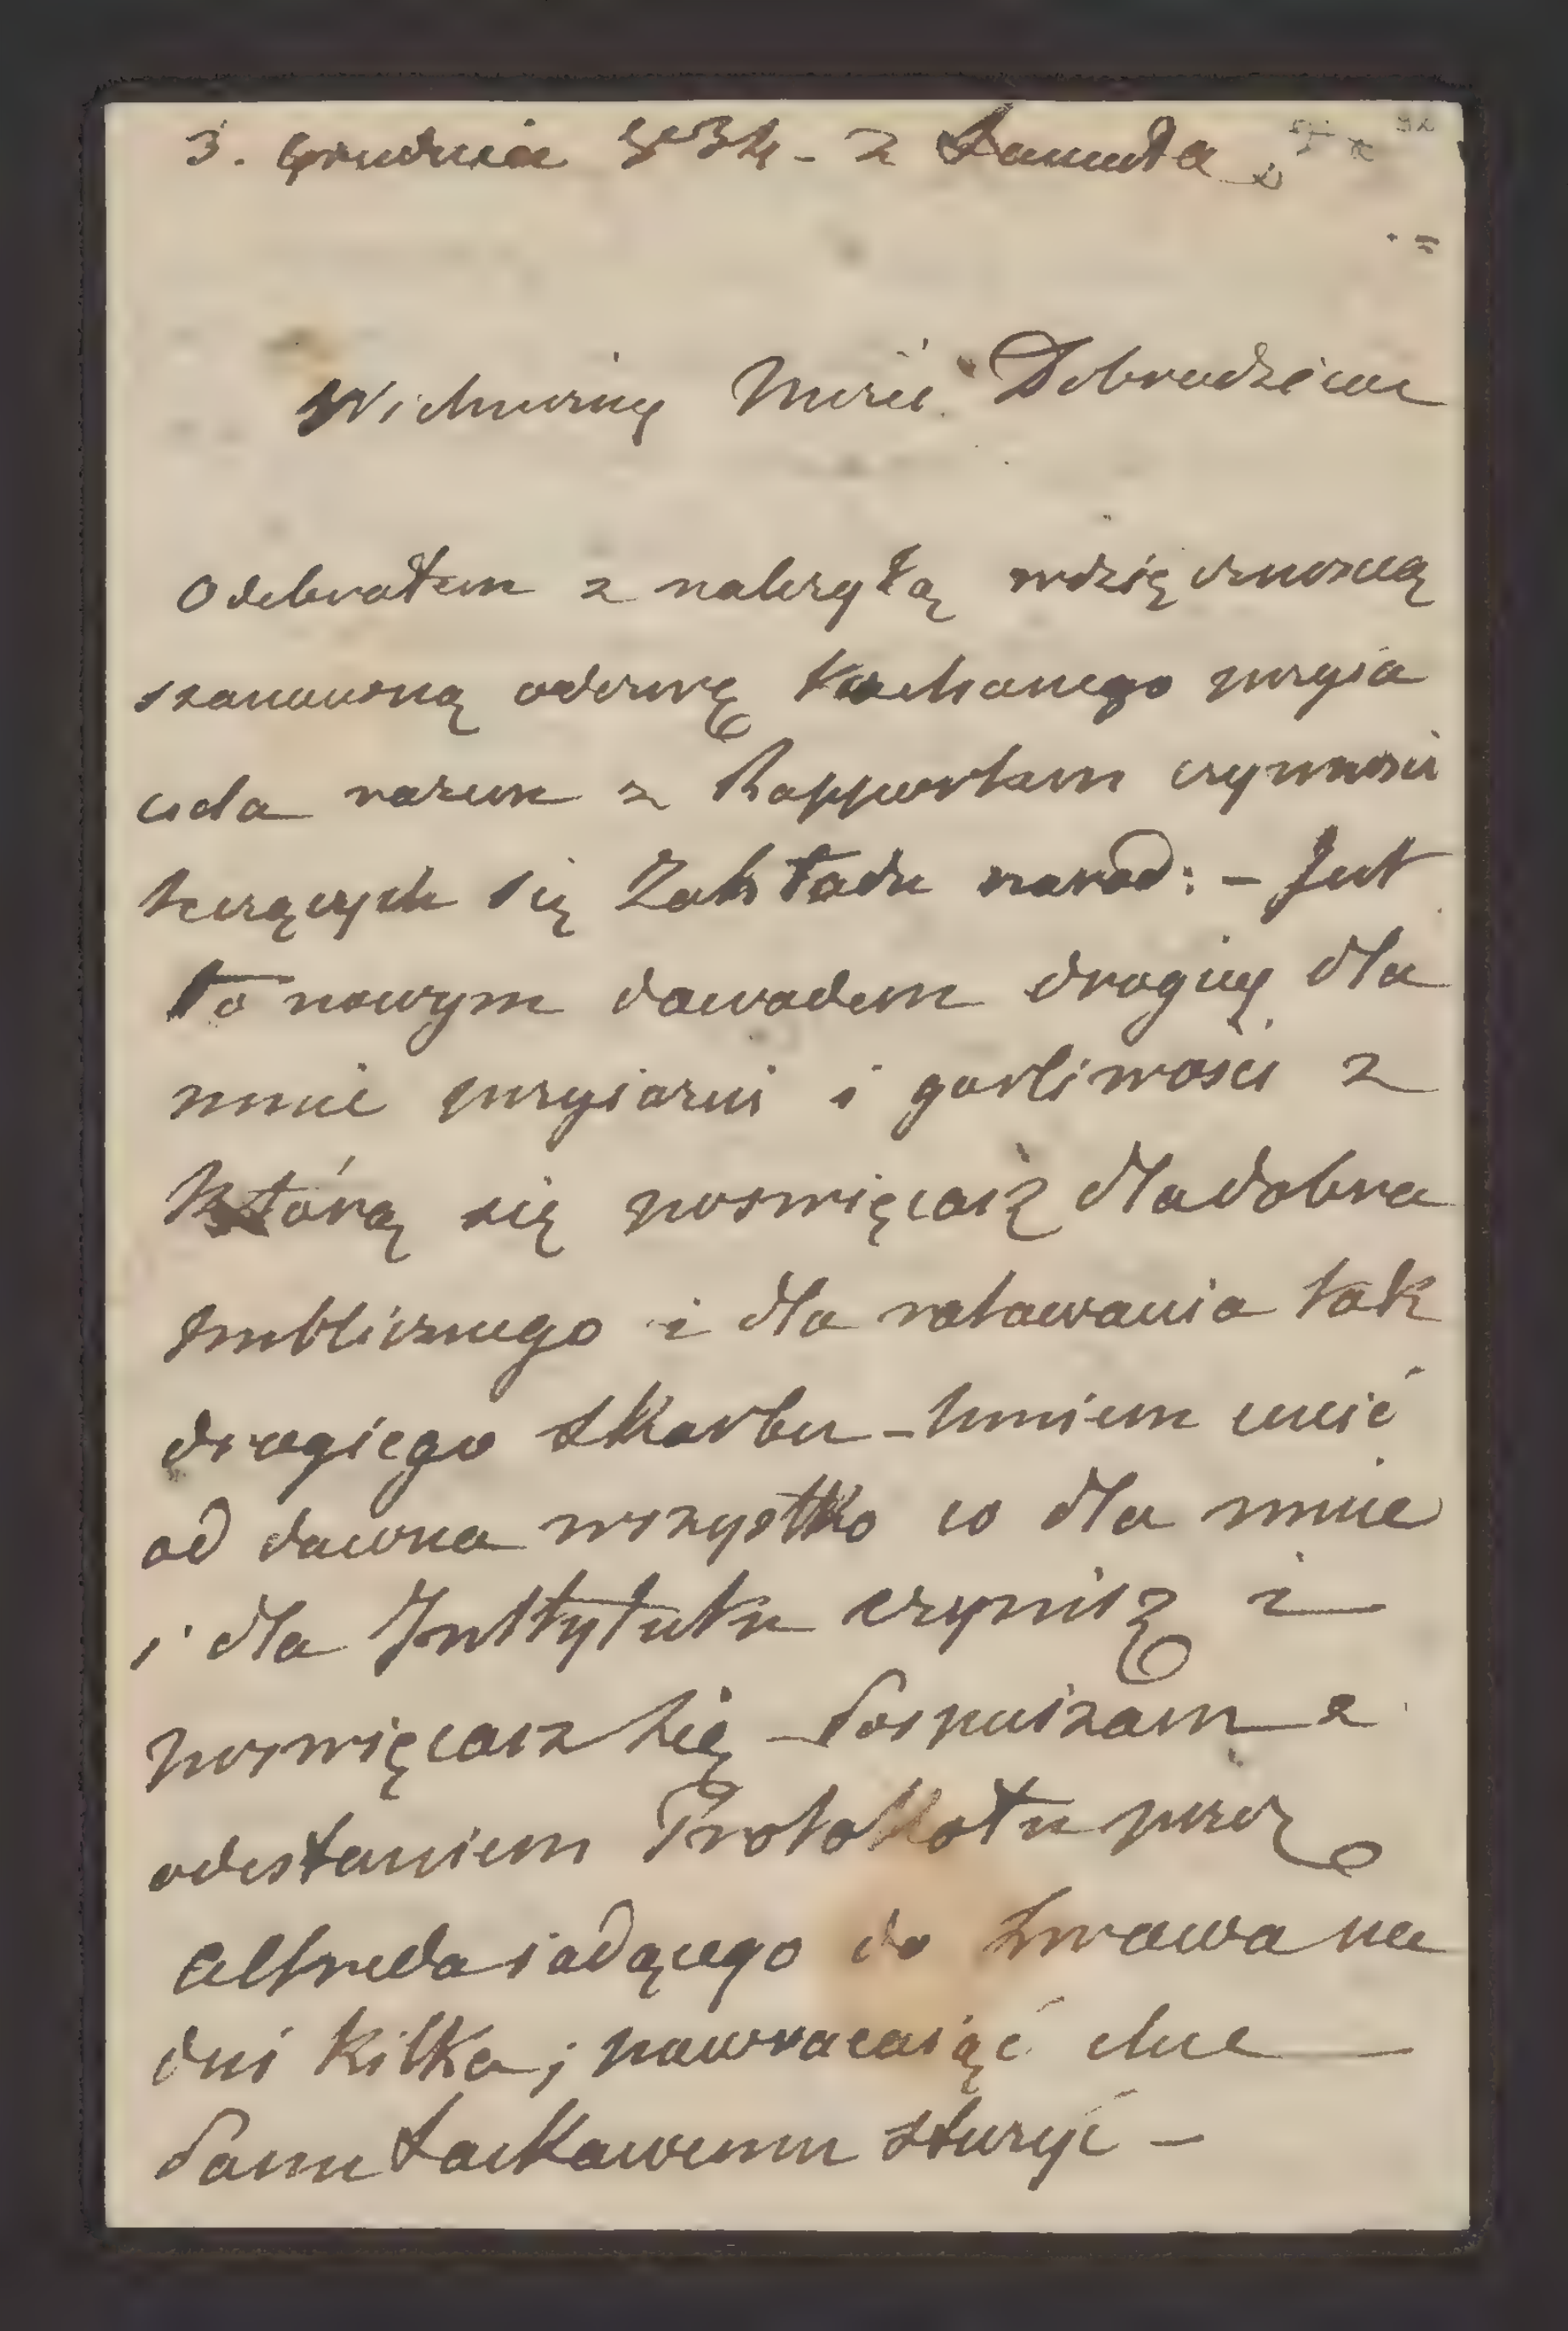 3. Grudnia 834 - z Łańcuta
Wielmożny Mości Dobrodzieiu
Odebrałem z należytą wdzięcznością
szanowną odezwę kochanego przyia
ciela razem z Rapportem czynności
tyczących się Zakładu narod: - Jest
to nowym dowodem drogiey dla
mnie przyiaźni i gorliwości z
którą się poswięcasz dla dobra
publicznego i dla ratowania tak
drogiego skarbu - Umiem cenić
od dawna wszystko co dla mnie
i dla Instytutu czynisz i
poswięcasz się - Pospieszam z
odesłaniem Protokołu przez
Alfreda iadącego do Lwowa na
dni kilka; powracaiąć chce
Panu Łaskawemu służyć -